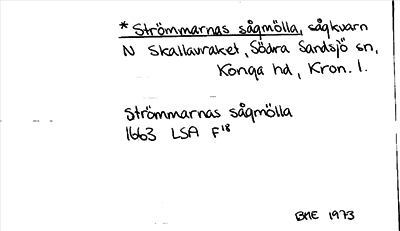 *Strömmarnas sågmölla, sågkvarn
N Skallavraket, Södra Sandsjö sn,
Konga hd, Kron. l.
Strömmarnas sågmölla
1663 LSA F18
BME 1973